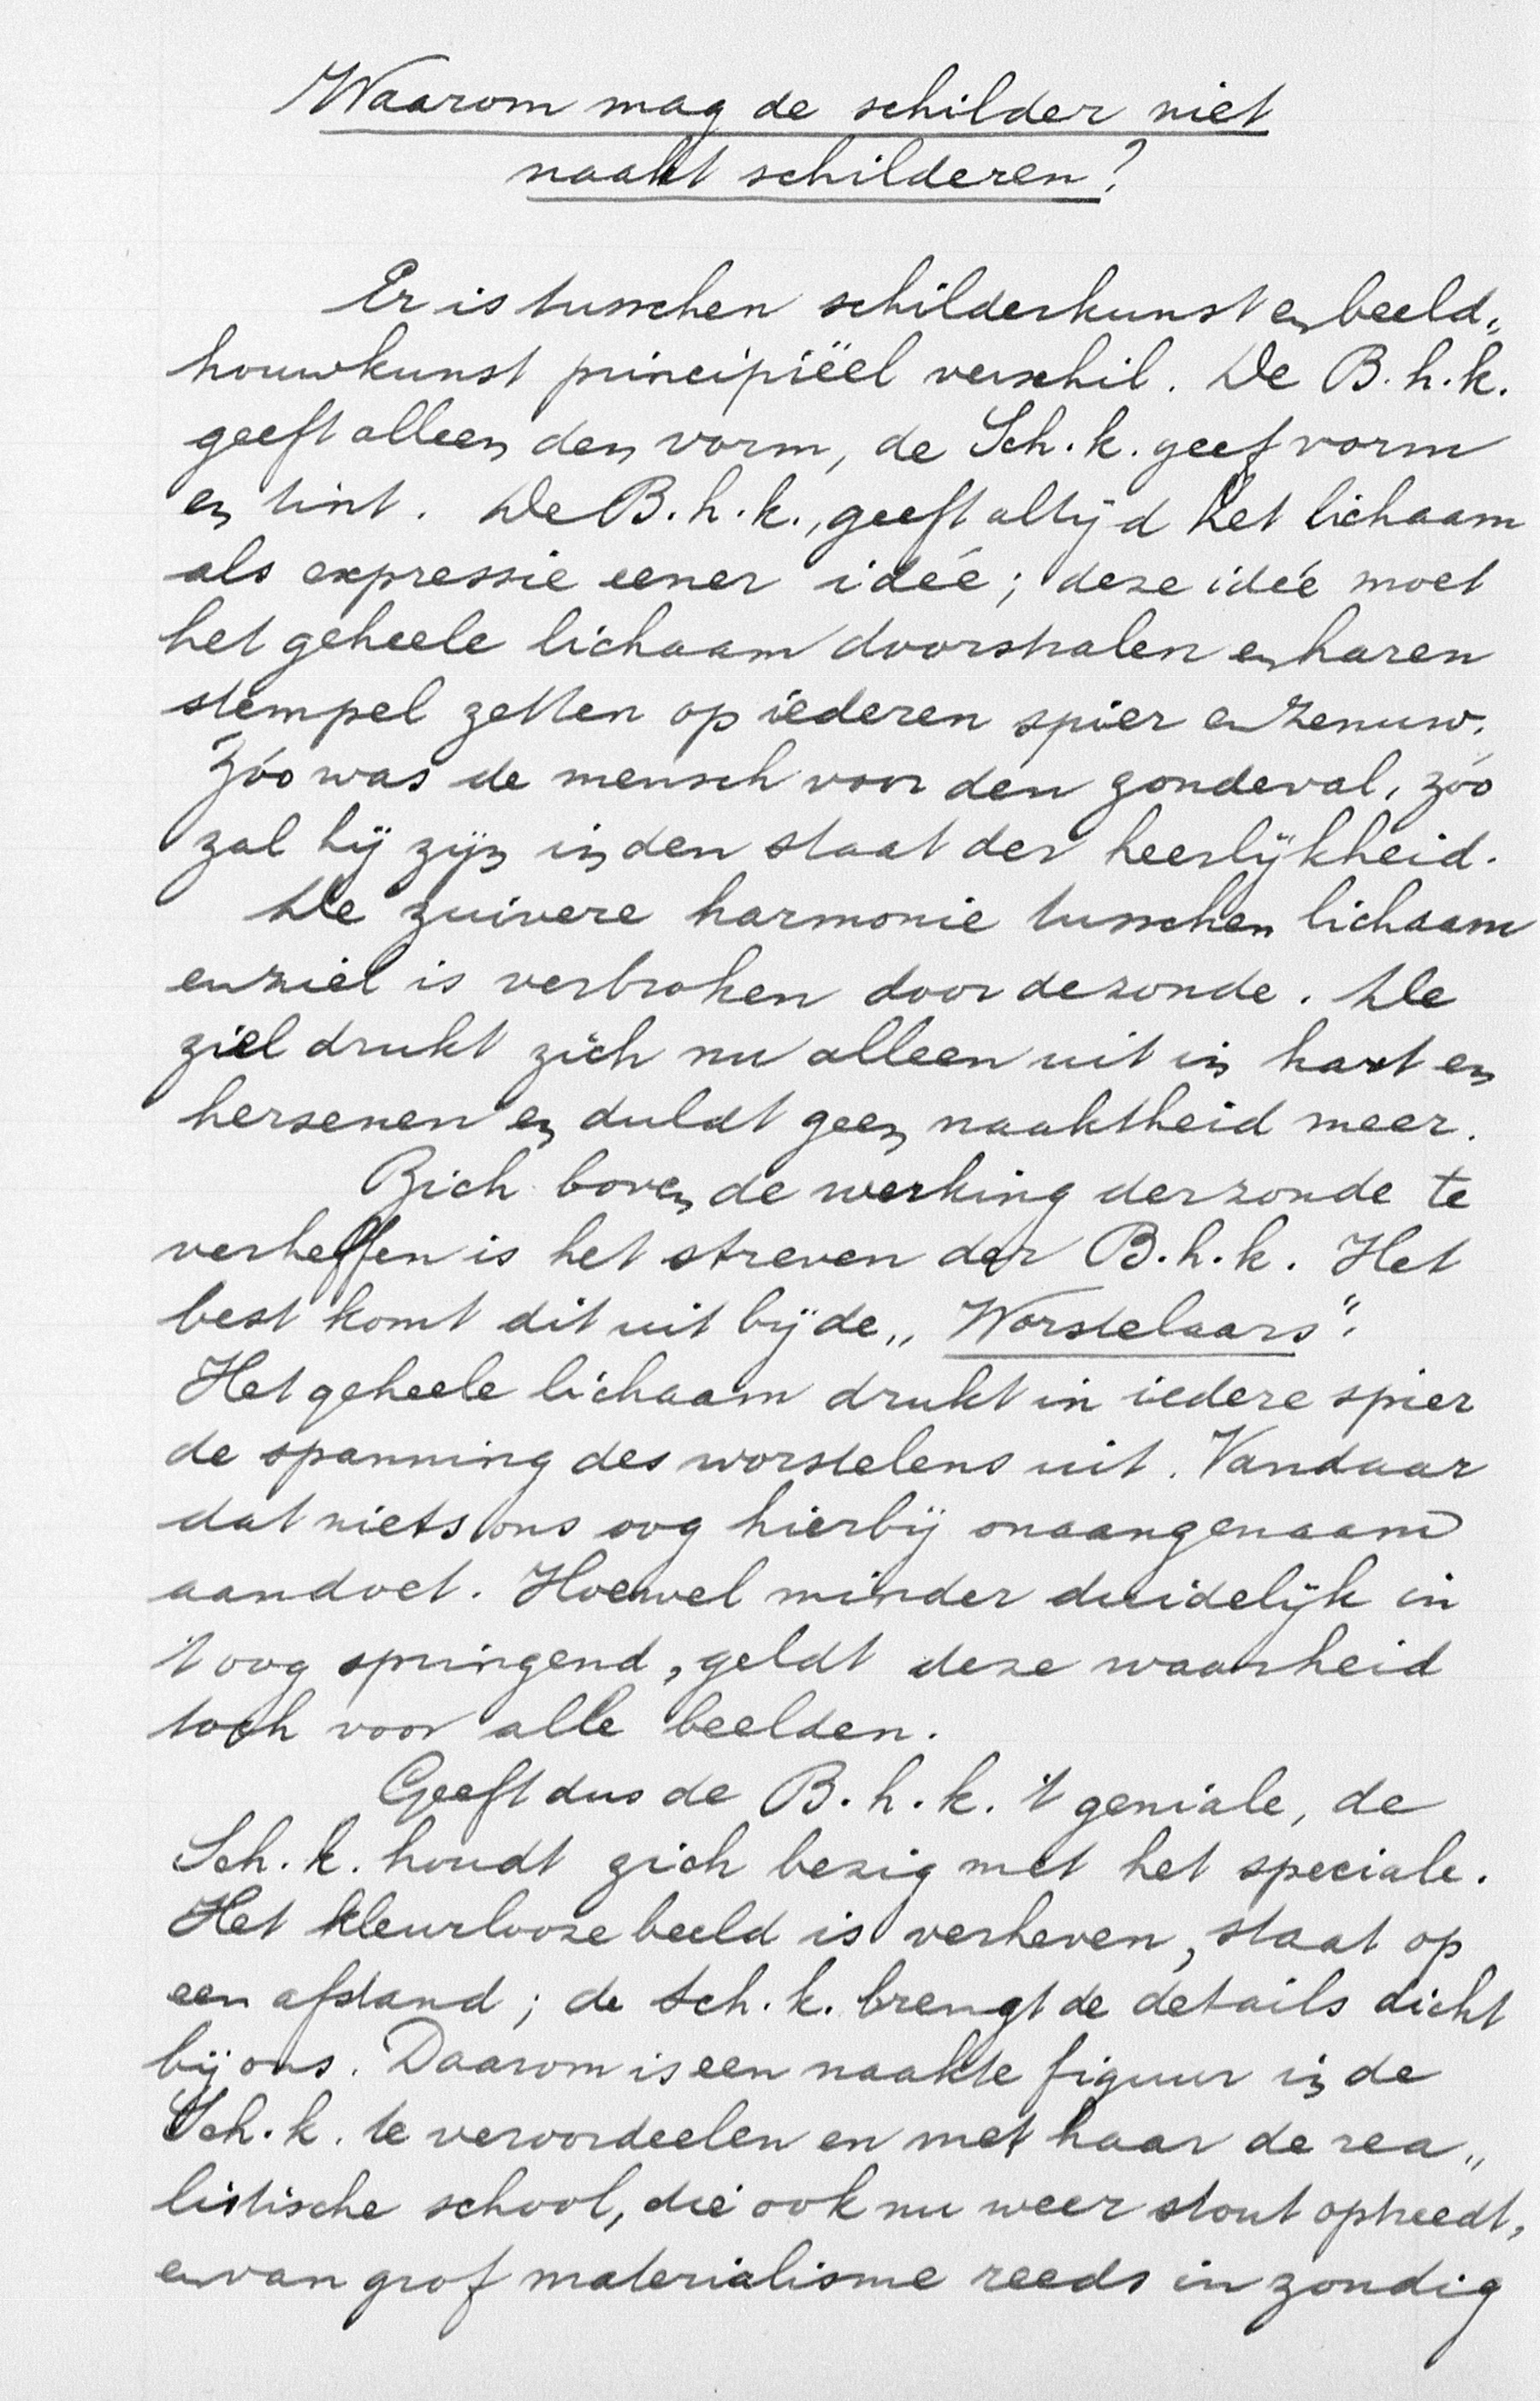 Waarom mag de schilder niet
naakt schilderen?
Er is tusschen schilderkunst en beeld„
houwkunst principiëel verschil. De B.h.k.
geeft alleen den vorm, de Sch.k. geef vorm
en tint. De B.h.k., geeft altijd het lichaam
als expressie eener idée; deze idée moet
het geheele lichaam doorstralen en haren
stempel zetten op iederen spier en zenuw.
Zóo was de mensch voor den zondeval, zóo
zal hij zijn in den staat der heerlijkheid.
De zuivere harmonie tusschen lichaam
en ziel is verbroken door de zonde. De
ziel drukt zich nu alleen uit in hart en
hersenen en duldt geen naaktheid meer.
Zich boven de werking der zonde te
verheffen is het streven der B.h.k. Het
best komt dit uit bij de „Worstelaars".
Het geheele lichaam drukt in iedere spier
de spanning des worstelens uit. Vandaar
dat niets ons oog hierbij onaangenaam
aandoet. Hoewel minder duidelijk in
't oog springend, geldt deze waarheid
toch voor alle beelden.
Geeft dus de B.h.k. 't geniale, de
Sch.k. houdt zich bezig met het speciale.
Het kleurlooze beeld is verheven, staat op
een afstand; de Sch.k. brengt de details dicht
bij ons. Daarom is een naakte figuur in de
Sch.k. te veroordeelen en met haar de rea„
listische school, die ook nu weer stout optreedt,
en van grof materialisme reeds in zondig